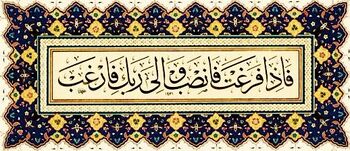 فَاِذَا فَرَغْتَ فَانْصَبْ وَاِلٰى رَبِّكَ فَارْغَبْ